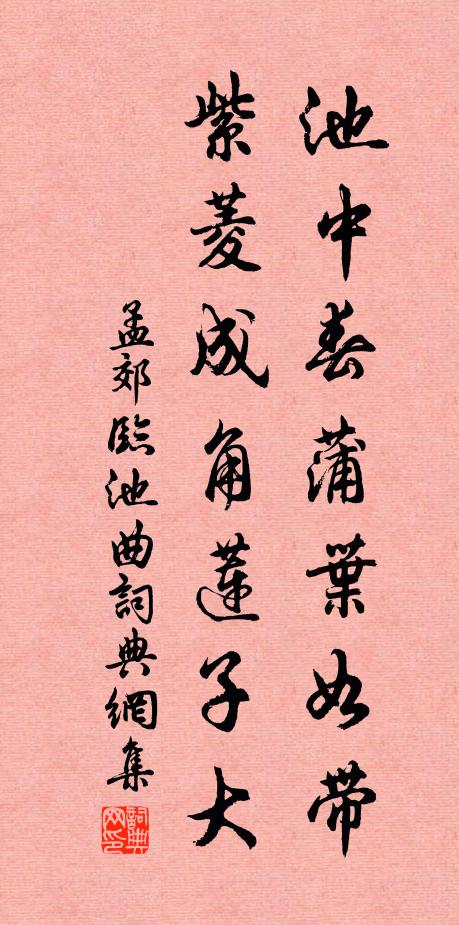 池中春蒲葉如帶
紫菱成角蓮子大
孟郊臨池曲詞典網集
詞典网印